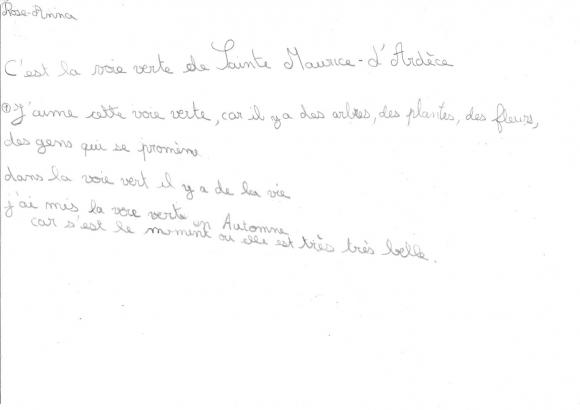 Rose-Anina
C'est la voie verte de Sainte Maurice-d'Ardèce
J'aime cette voie verte, car il y a des arbres, des plantes, des fleurs,
des gens qui se promène
dans la voie vert il y a de la vie
j'ai mis la voie verte en Automne
car s'est le moment ou elle est très très belle.